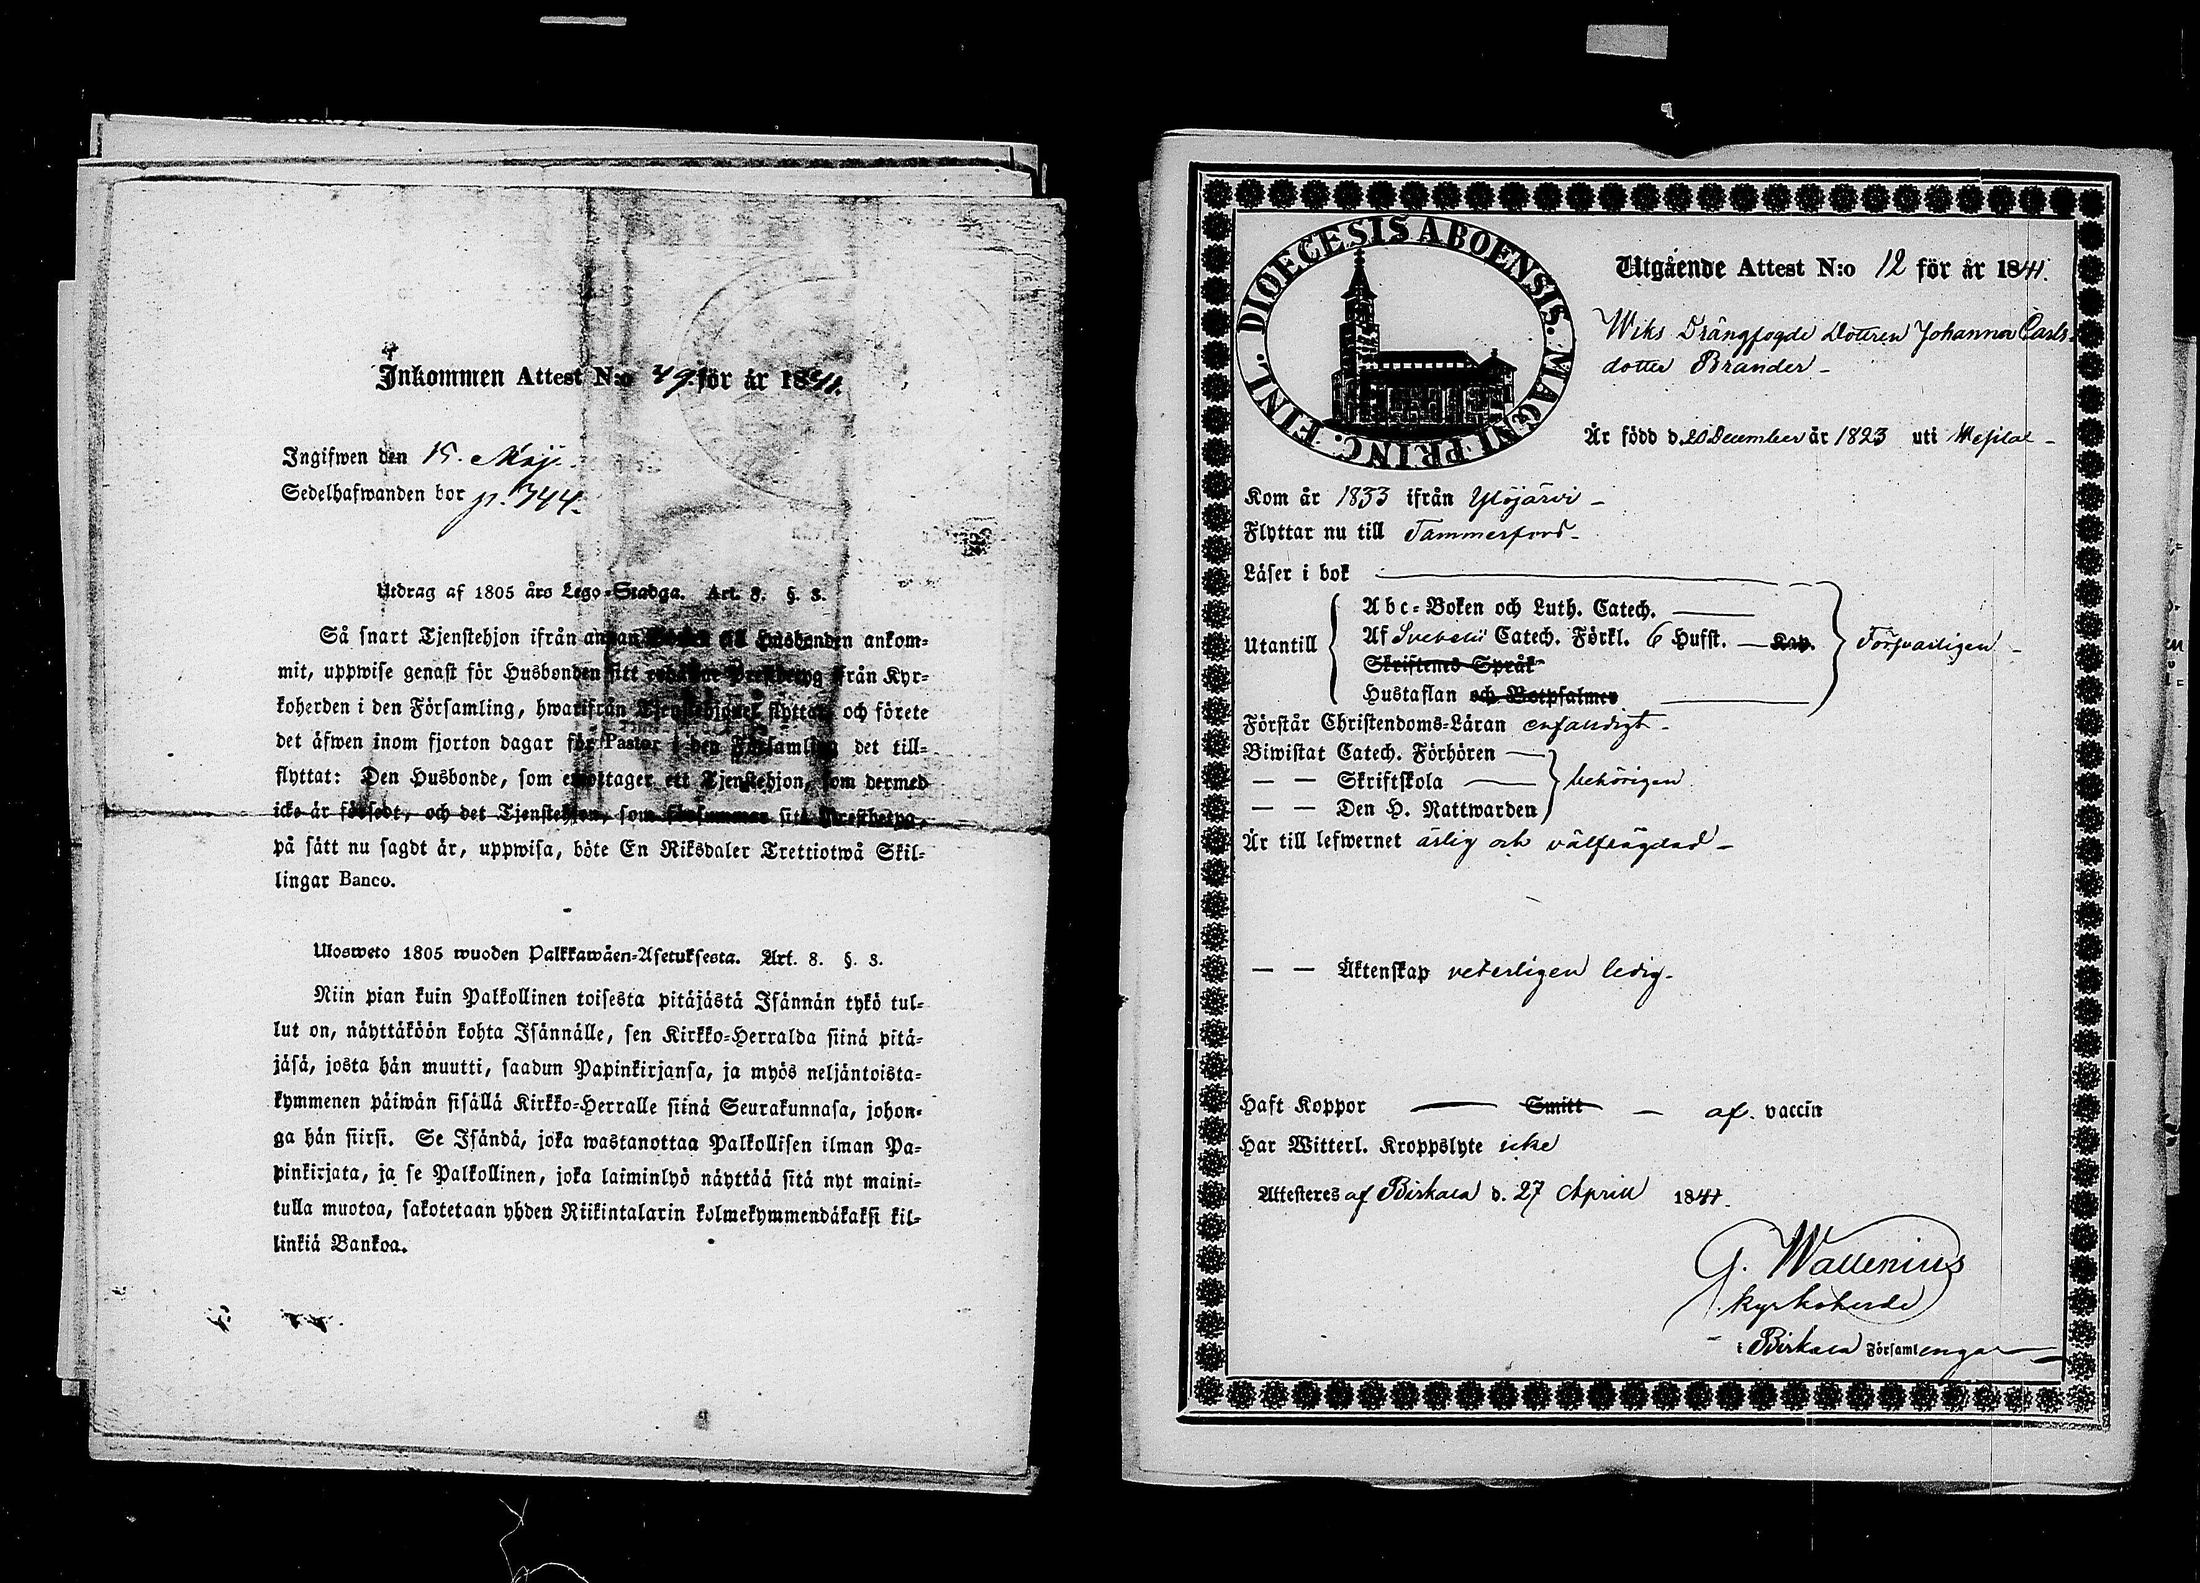 Inkommen Attest N:o 49 för år 1841.
Ingifwen den 15. Maji.
Sedelhafwanden bor p. 744.
Utdrag af 1805 års Lego-Stadga. Art. 8. §. 3.
Så snart Tjenstehjon ifrån annan Husbonden ankom-
mit, uppwise genast för Husbonden sitt Prestbetyg från Kyr-
koherden i den Församling, hwarifrån Tjenstehjonet flyttat, och förete
det äfwen inom fjorton dagar för Pastor i den Församling det till-
flyttat: Den Husbonde, som emottager ett Tjenstehjon, som dermed
icke är försedt, och det Tjenstehjon, som försummar sitt Prestbetyg,
på sätt nu sagdt är, uppwisa, böte En Riksdaler Trettiotwå Skil-
lingar Banco.
Ulosweto 1805 wuoden Palkkawäen-Asetuksesta. Art. 8. §. 3.
Niin pian kuin Palkollinen toisesta pitäjästä Isännän tykö tul-
lut on, näyttäköön kohta Isännälle, sen Kirkko-Herralda siinä pitä-
jäsä, josta hän muutti, saadun Papinkirjansa, ja myös neljäntoista-
kymmenen päiwän sisällä Kirkko-Herralle siinä Seurakunnasa, johon-
ga hän siirsi. Se Isändä, joka wastanottaa Palkollisen ilman Pa-
pinkirjata, ja se Palkollinen, joka laiminlyö näyttää sitä nyt maini-
tulla muotoa, sakotetaan yhden Riikintalarin kolmekymmendäkaksi kil-
linkiä Bankoa.
DIOECESIS ABOENSIS. MAGNI PRINC. FINL.
Utgående Attest N:o 12 för år 1841.
Wiks Drängfogde Dottren Johanna Carls-
dotter Brander -
Är född d. 20 December år 1823 uti Wesilax -
Kom år 1833 ifrån Ylöjärvi -
Flyttar nu till Tammerfors -
Läser i bok
Utantill
Abc-Boken och Luth. Catech.
Af Svebelii Catech. Förkl. 6 Hufst. Kap.
Skriftenes Språk
Hustaflan och Botpsalmer
Försvarligen -
Förstår Christendoms-Läran enfaldigt -
Biwistat Catech. Förhören
— — Skriftskola
— — Den H. Nattwarden
behörigen
Är till lefwernet ärlig och välfrägdad -
— — Äktenskap veterligen ledig -
Haft Koppor Smitt — af. vaccin
Har Witterl. Kroppslyte icke
Attesteras af Birkala d. 27 April 1841.
G. Wallenius
kyrkoherde
i Birkala Församlingar